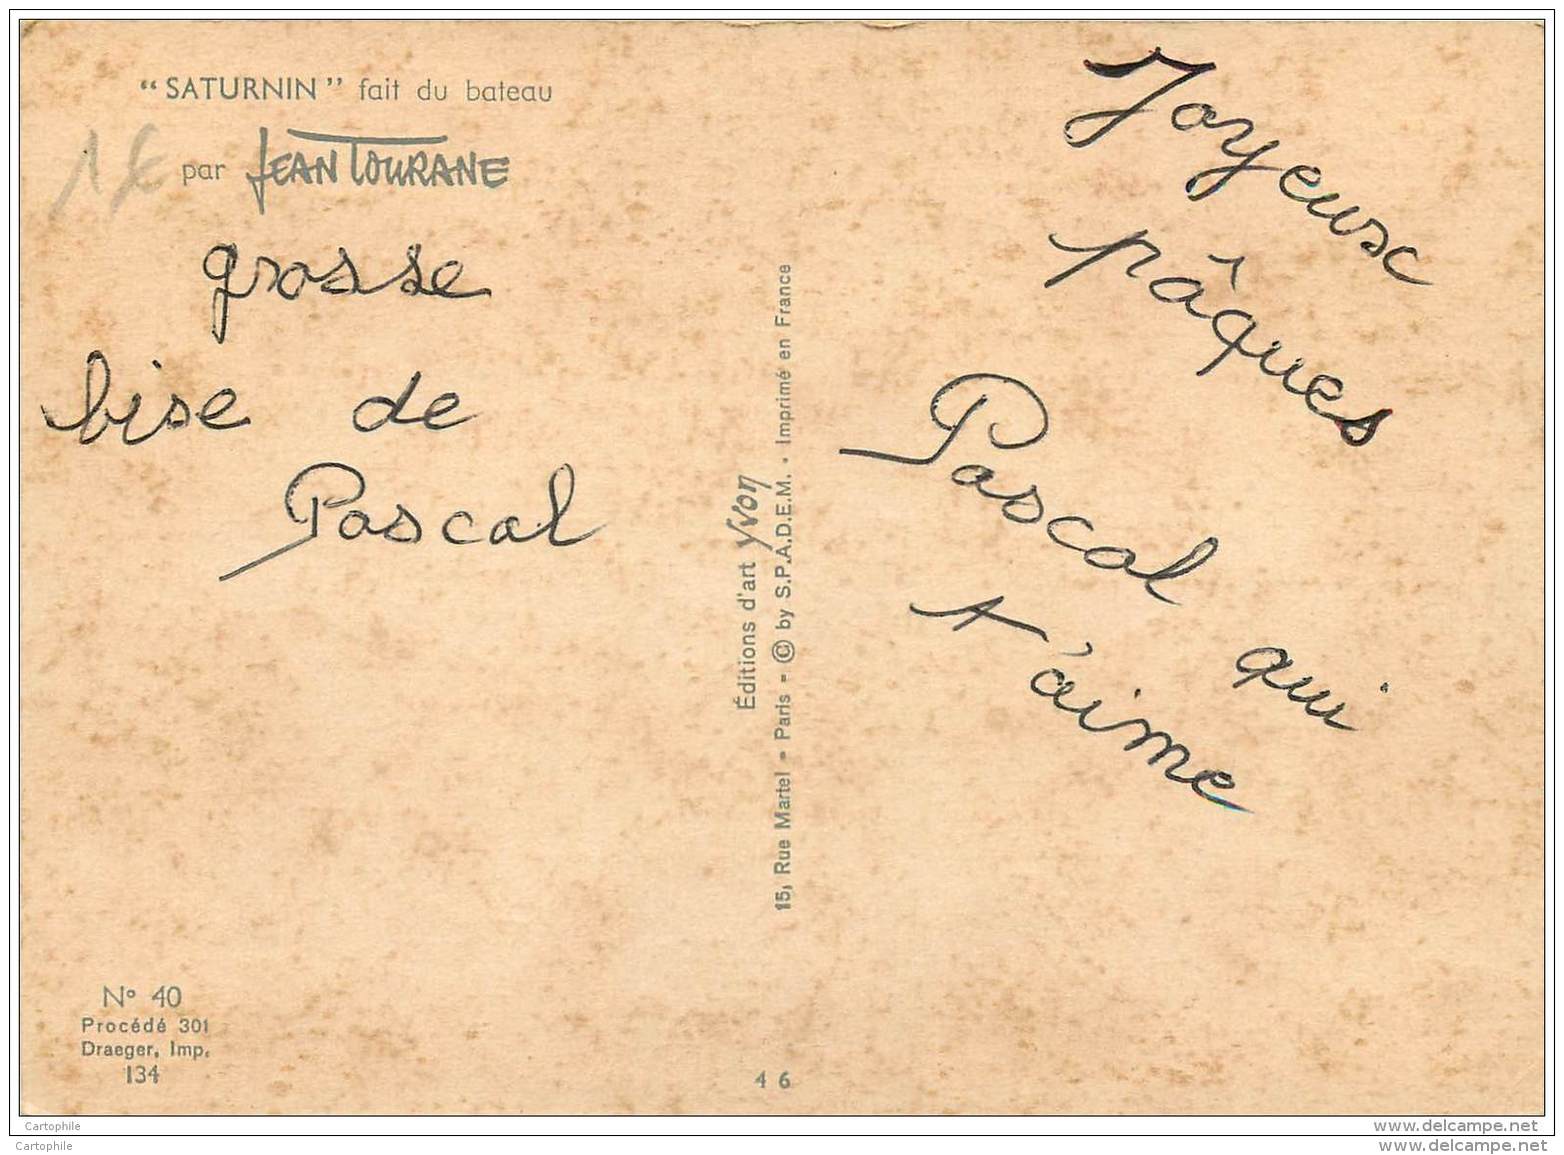 “SATURNIN” fait du bateau
1€
par JEAN TOURANE
grosse
bise de
Pascal
Joyeusc
pâques
Pascal qui
t'aime
Éditions d'art Yvon
15, Rue Martel - Paris - © by S.P.A.D.E.M. - Imprimé en France
N° 40
Procédé 301
Draeger, Imp.
134
4 6
Cartophile
www.delcampe.net
Cartophile
www.delcampe.net